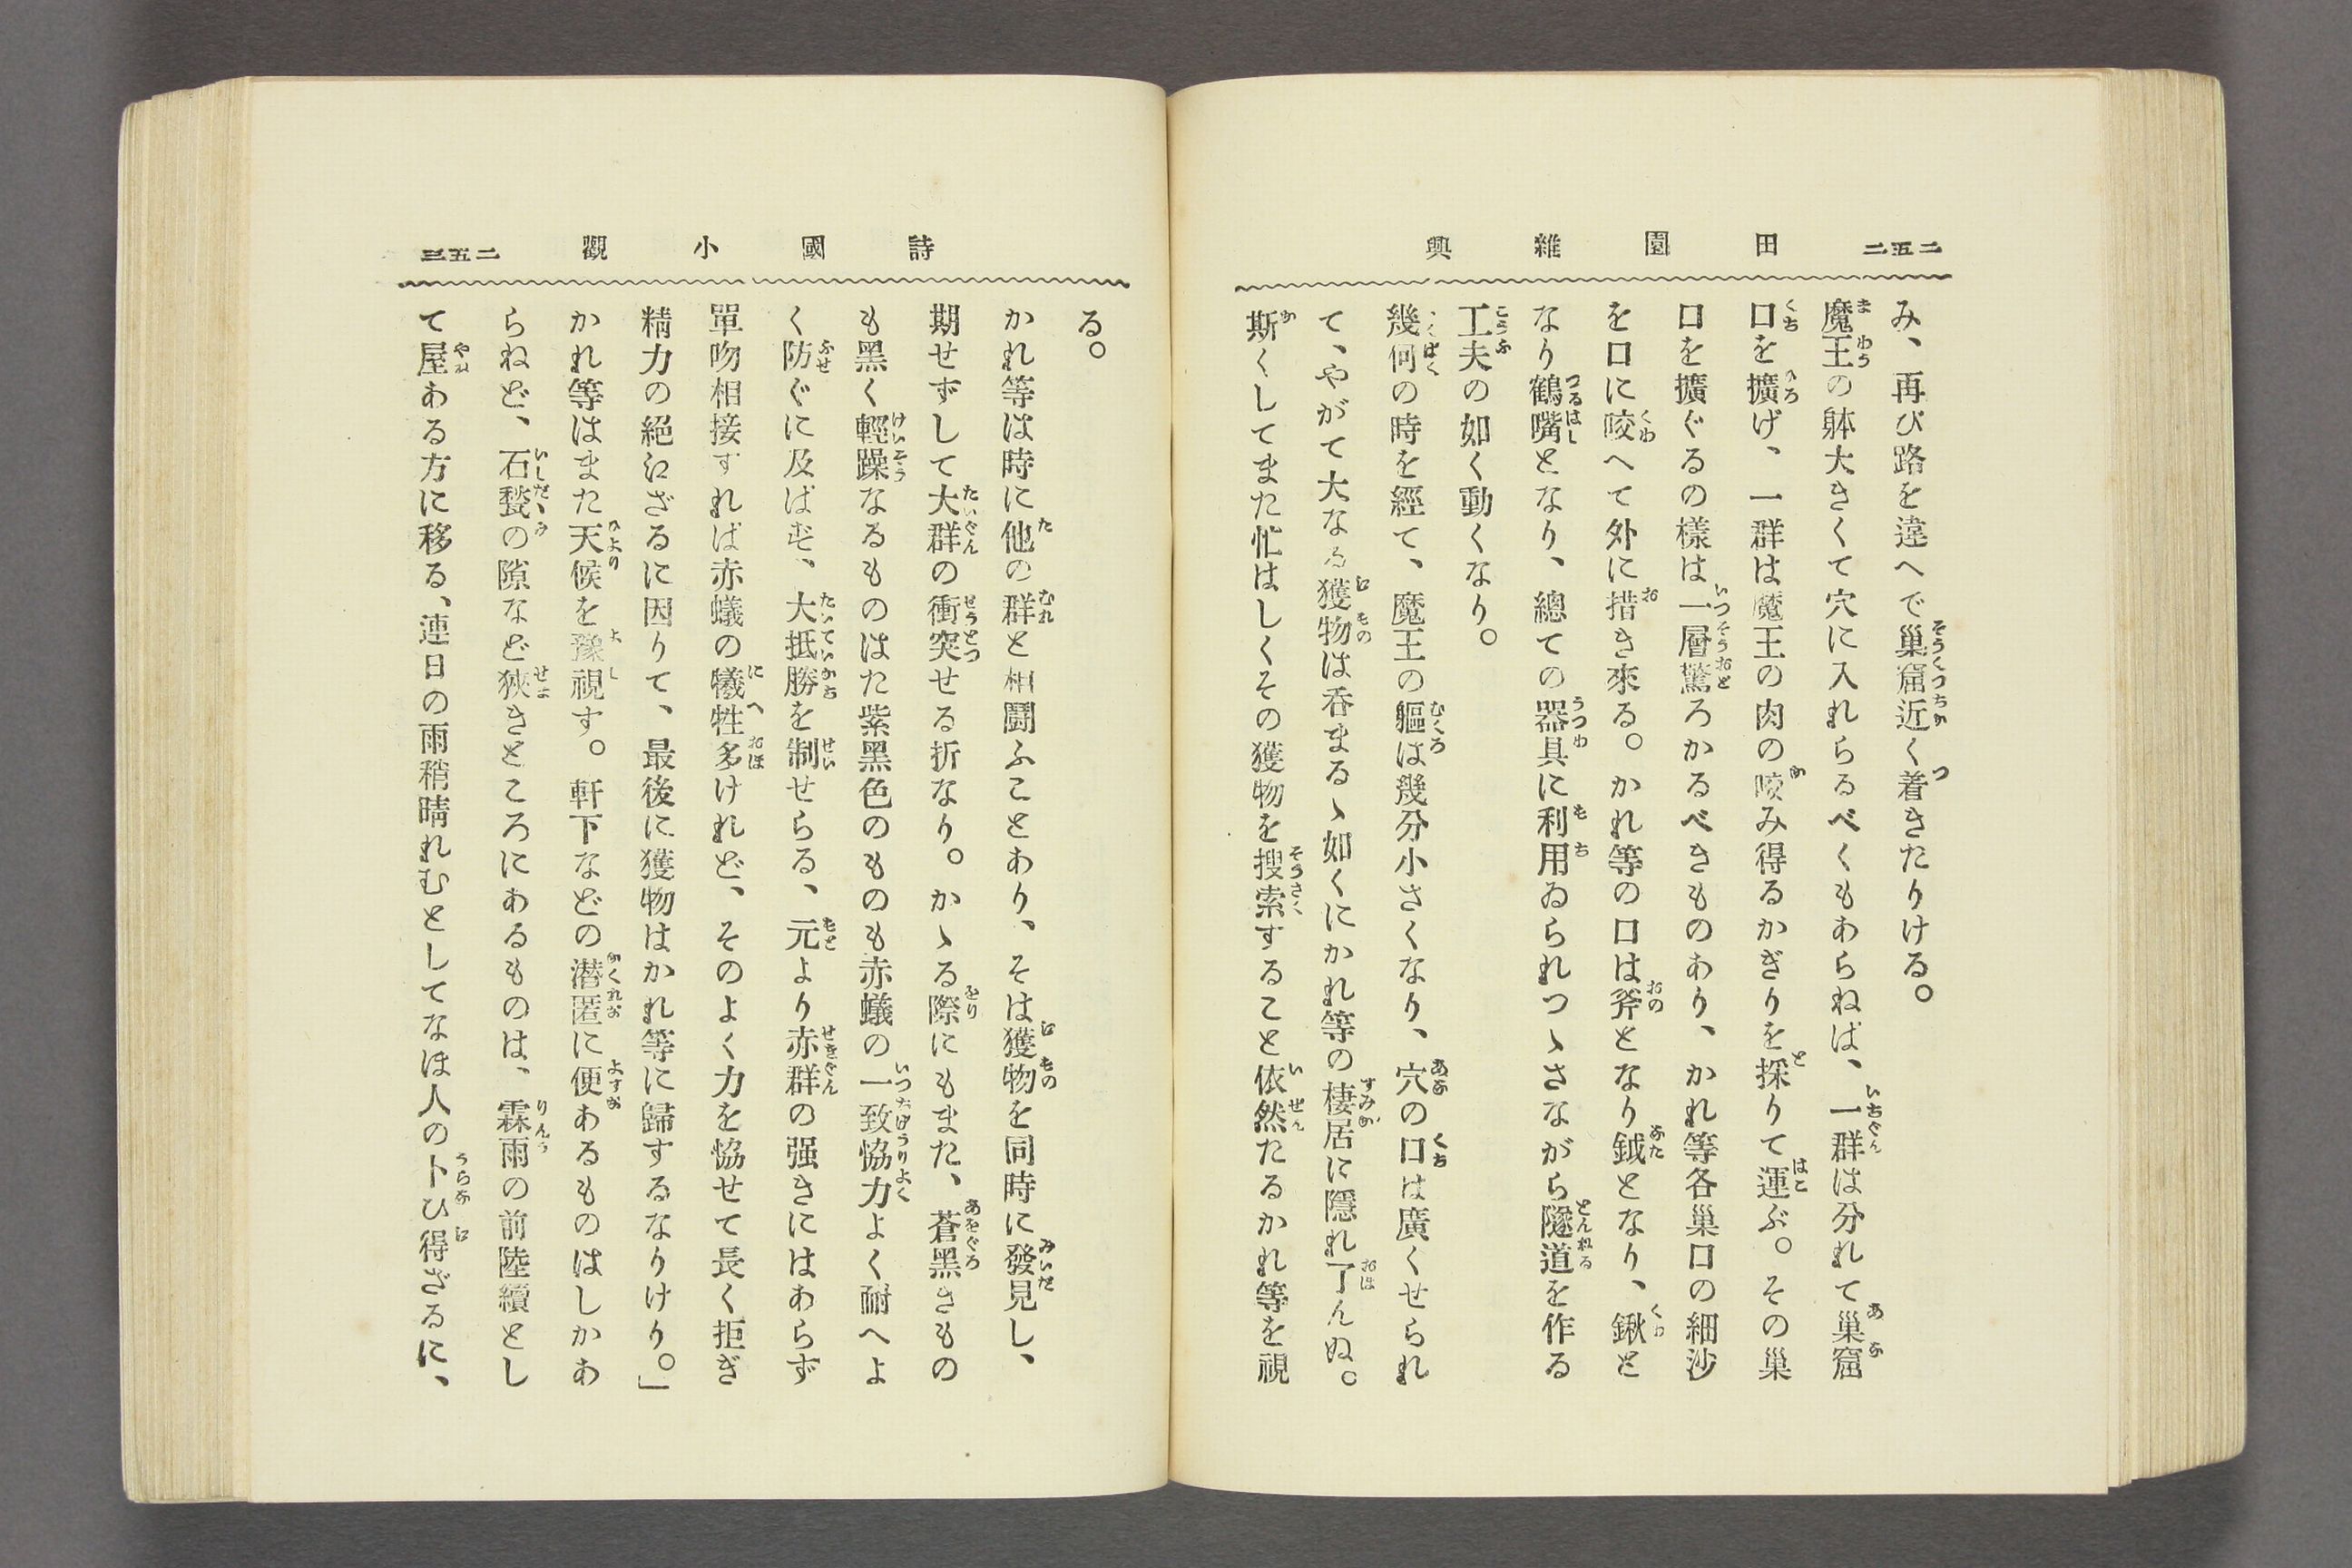 二五二 田園雜興
み、再び路を違へで巢窟近く着きたりける。
魔王の躰大きくて穴に入れらるべくもあらねば、一群は分れて巢窟
口を擴げ、一群は魔王の肉の咬み得るかぎりを採りて運ぶ。その巢
口を擴ぐるの樣は一層驚ろかるべきものあり、かれ等各巢口の細沙
を口に咬へて外に措き來る。かれ等の口は斧となり鉞となり、鍬と
なり鶴嘴となり、總ての器具に利用ゐられつゝさながら隧道を作る
工夫の如く動くなり。
幾何の時を經て、魔王の軀は幾分小さくなり、穴の口は廣くせられ
て、やがて大なる獲物は呑まるゝ如くにかれ等の棲居に隱れ了んぬ。
斯くしてまた忙はしくその獲物を搜索すること依然たるかれ等を視
詩國小觀 二五三
る。
かれ等は時に他の群と相鬪ふことあり、そは獲物を同時に發見し、
期せずして大群の衝突せる折なり。かゝる際にもまた、蒼黑きもの
も黑く輕躁なるものはた紫黑色のものも赤蟻の一致恊力よく耐へよ
く防ぐに及ばず、大抵勝を制せらる、元より赤群の强きにはあらず
單吻相接すれば赤蟻の犧牲多けれど、そのよく力を恊せて長く拒ぎ
精力の絕えざるに因りて、最後に獲物はかれ等に歸するなりけり。」
かれ等はまた天候を豫視す。軒下などの潜匿に便あるものはしかあ
らねど、石甃の隙など狹きところにあるものは、霖雨の前陸續とし
て屋ある方に移る、連日の雨稍晴れむとしてなほ人の卜ひ得ざるに、